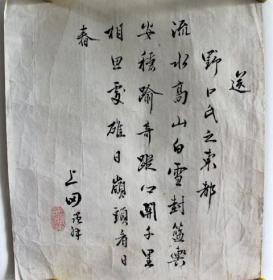 送
野口氏之東都
流水高山白雲封籃輿
安穏踰奇蹤心開千里
相思處雄日嶺頭看日
春
上田